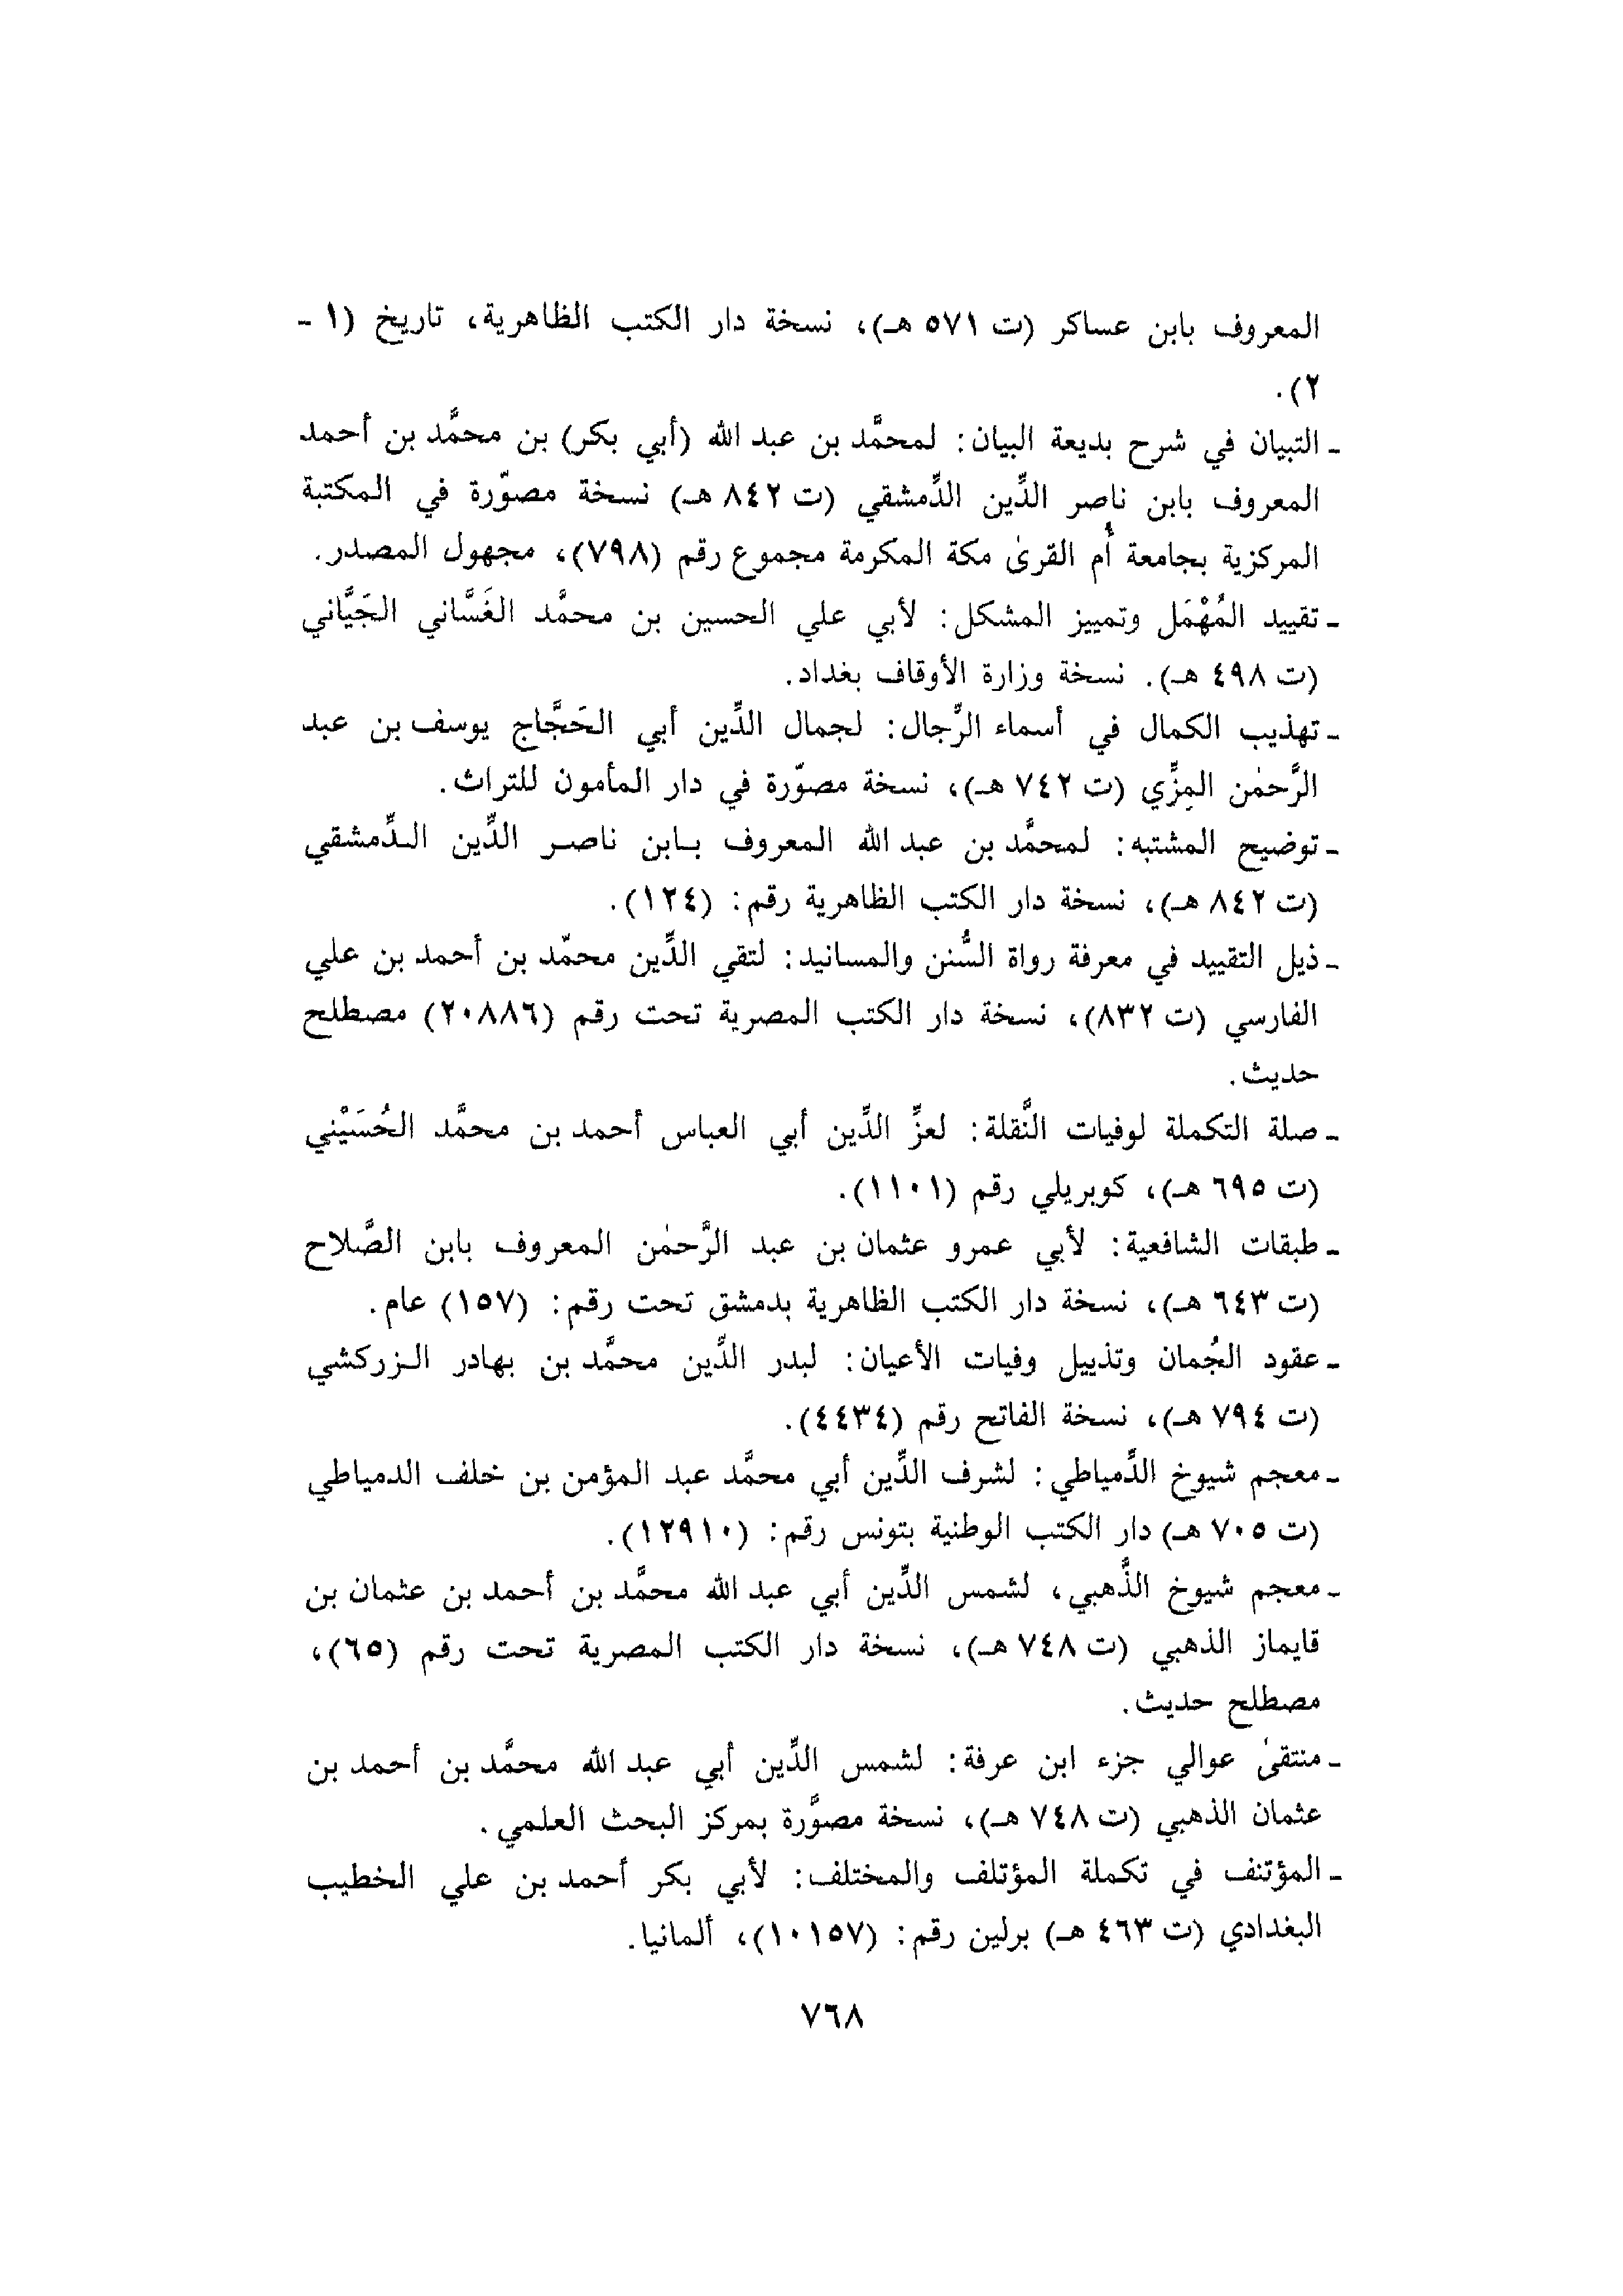 المعروف بابن عساكر (ت ٥٧١ هـ)، نسخة دار الكتب الظاهرية، تاريخ (١ -
٢).
- التبيان في شرح بديعة البيان: لمحمَّد بن عبد الله (أبي بكر) بن محمَّد بن أحمد
المعروف بابن ناصر الدِّين الدِّمشقي (ت ٨٤٢ هـ) نسخة مصوّرة في المكتبة
المركزية بجامعة أُم القرىٰ مكة المكرمة مجموع رقم (٧٩٨)، مجهول المصدر.
- تقييد المُهْمَل وتمييز المشكل: لأبي علي الحسين بن محمَّد الغَسَّاني الجَيَّاني
(ت ٤٩٨ هـ). نسخة وزارة الأوقاف بغداد.
- تهذيب الكمال في أسماء الرِّجال: لجمال الدِّين أبي الحَجَّاج يوسف بن عبد
الرَّحمٰن المِزِّي (ت ٧٤٢ هـ)، نسخة مصوّرة في دار المأمون للتراث.
- توضيح المشتبه: لمحمَّد بن عبد الله المعروف بـابن ناصـر الدِّين الـدِّمشقي
(ت ٨٤٢ هـ)، نسخة دار الكتب الظاهرية رقم: (١٢٤).
- ذيل التقييد في معرفة رواة السُّنن والمسانيد: لتقي الدِّين محمّد بن أحمد بن علي
الفارسي (ت ٨٣٢)، نسخة دار الكتب المصرية تحت رقم (٢٠٨٨٦) مصطلح
حديث.
- صلة التكملة لوفيات النَّقلة: لعزِّ الدِّين أبي العباس أحمد بن محمَّد الحُسَيْني
(ت ٦٩٥ هـ)، كوبريلي رقم (١١٠١).
- طبقات الشافعية: لأبي عمرو عثمان بن عبد الرَّحمٰن المعروف بابن الصَّلاح
(ت ٦٤٣ هـ)، نسخة دار الكتب الظاهرية بدمشق تحت رقم: (١٥٧) عام.
- عقود الجُمان وتذييل وفيات الأعيان: لبدر الدِّين محمَّد بن بهادر الـزركشي
(ت ٧٩٤ هـ)، نسخة الفاتح رقم (٤٤٣٤).
- معجم شيوخ الدِّمياطي: لشرف الدِّين أبي محمَّد عبد المؤمن بن خلف الدمياطي
(ت ٧٠٥ هـ) دار الكتب الوطنية بتونس رقم: (١٢٩١٠).
- معجم شيوخ الذَّهبي، لشمس الدِّين أبي عبد الله محمَّد بن أحمد بن عثمان بن
قايماز الذهبي (ت ٧٤٨ هـ)، نسخة دار الكتب المصرية تحت رقم (٦٥)،
مصطلح حديث.
- منتقىٰ عوالي جزء ابن عرفة: لشمس الدِّين أبي عبد الله محمَّد بن أحمد بن
عثمان الذهبي (ت ٧٤٨ هـ)، نسخة مصوَّرة بمركز البحث العلمي.
- المؤتنف في تكملة المؤتلف والمختلف: لأبي بكر أحمد بن علي الخطيب
البغدادي (ت ٤٦٣ هـ) برلين رقم: (١٠١٥٧)، ألمانيا.
٧٦٨